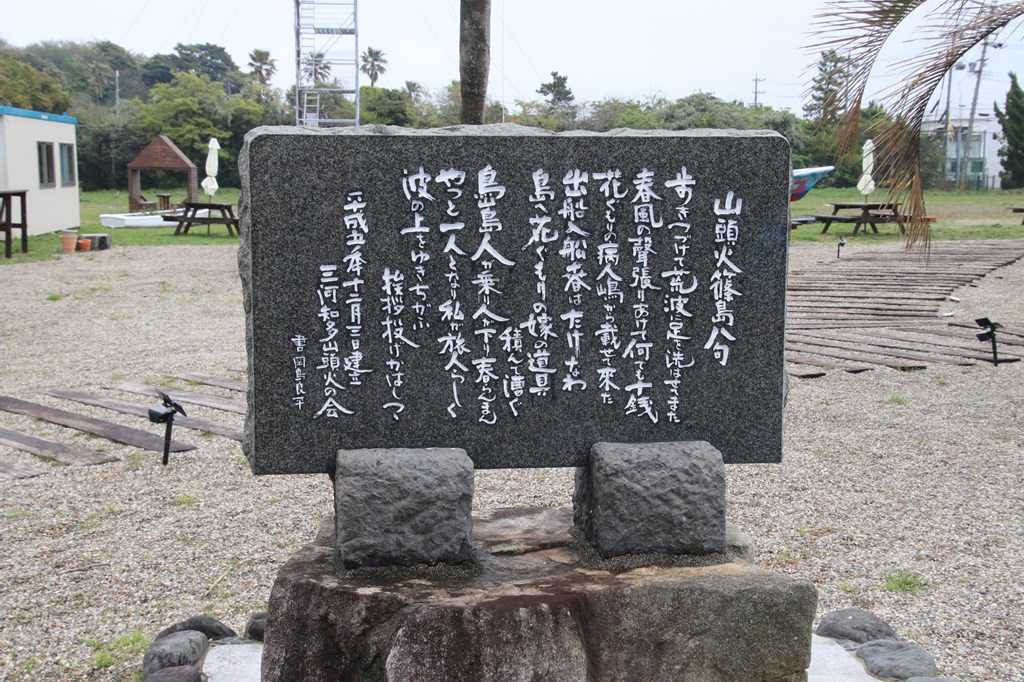 山頭火篠島八句
歩きつづけて荒波に足を洗はせてまた
春風の聲張りあげて何でも十銭
花ぐもりの病人嶋から載せて来た
出船入船春はたけなわ
島へ花ぐもりの嫁の道具
積んで漕ぐ
島島人が乗り人が下り春らんまん
やっと一人となり私が旅人らしく
波の上をゆきちがふ
挨拶投げかはしつつ
平成五年十二月三日建立
三河知多山頭火の会
書 岡島良平